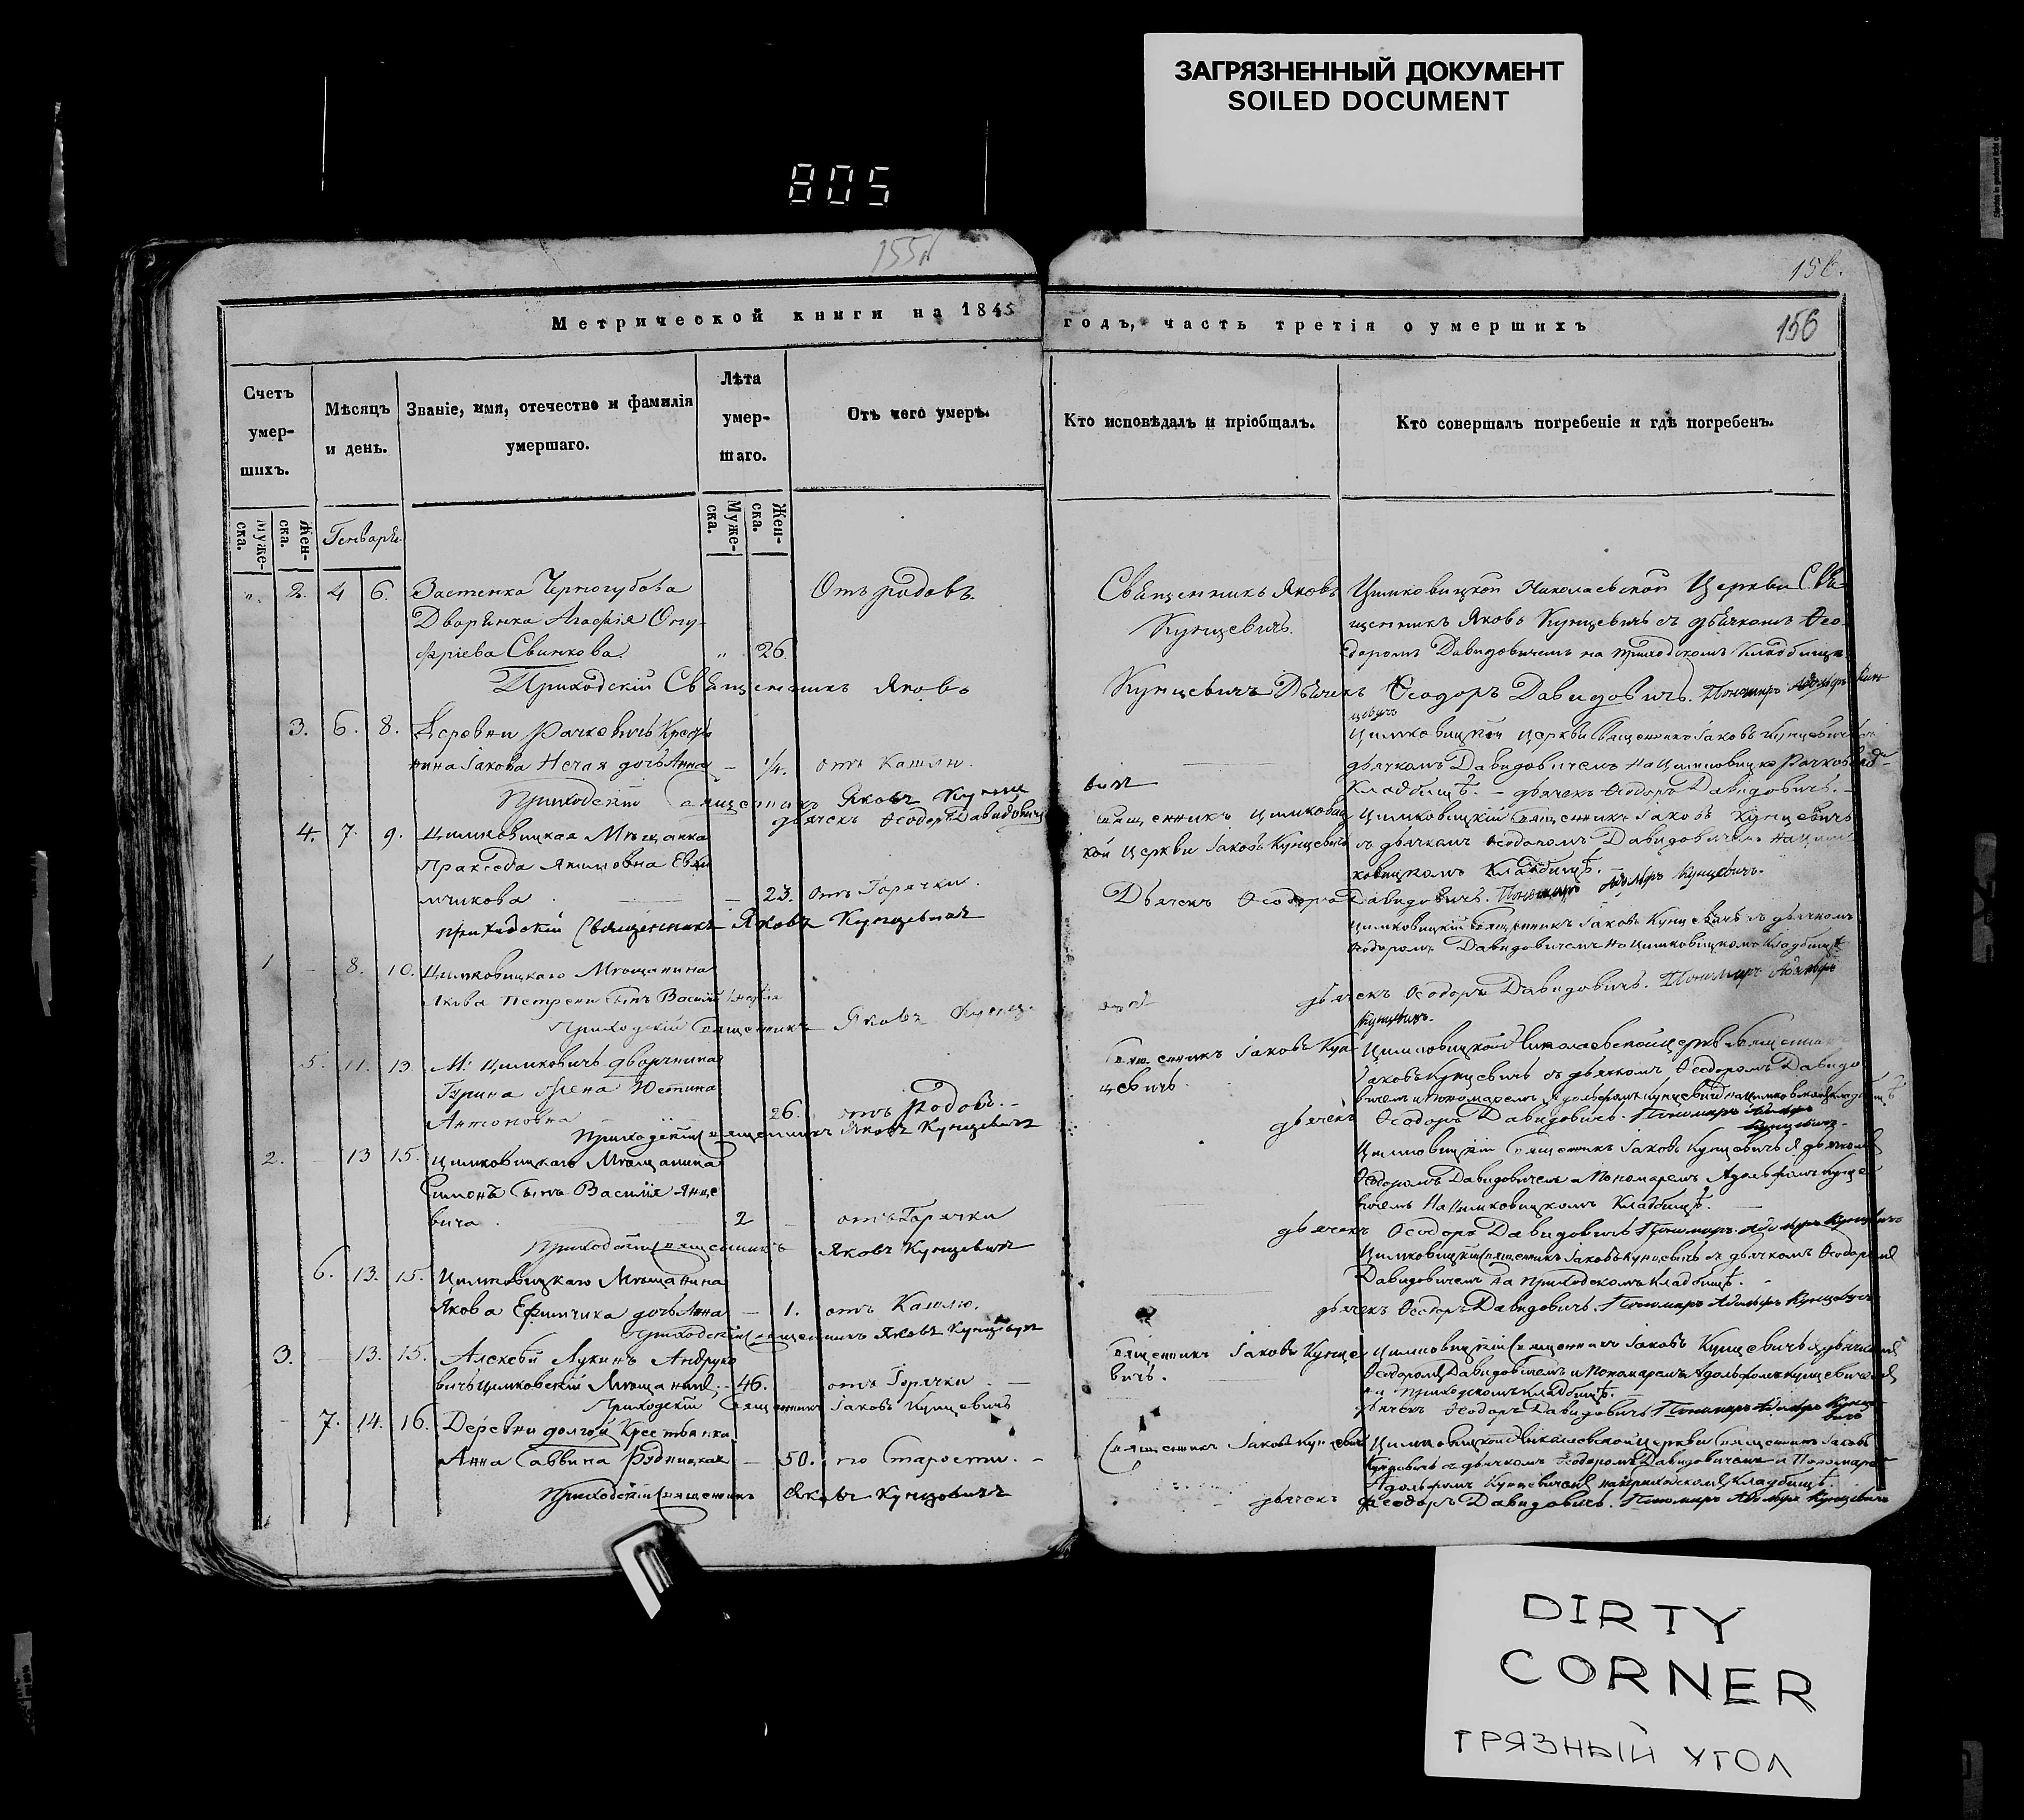 ЗАГРЯЗНЕННЫЙ ДОКУМЕНТ
SOILED DOCUMENT
805
155
156.
156
Метрической книги на 1845 годъ, часть третія о умершихъ
Счетъ умер-шихъ.
Мѣсяцъ и день.
Званіе, имя, отечество и фамилія умершаго.
Лѣта умер-шаго.
Отъ чего умеръ.
Кто исповѣдалъ и пріобщалъ.
Кто совершалъ погребеніе и гдѣ погребенъ.
Муже-ска.
Жен-ска.
Генварь
Муже-ска.
Жен-ска.
2. 4 6. Застенка Черногубова
Отъ родовъ.
Священникъ Яковъ
Цимковицкой Николаевской Церкви Свя-
Дворянка Агафія Ону-
Кунцевичъ.
щенникъ Яковъ Кунцевичъ съ дьячкомъ Ѳео-
фріева Свинкова. 26.
доромъ Давидовичемъ на приходскомъ кладбищѣ.
Приходскій Священникъ Яковъ Кунцевичъ Дьячекъ Ѳеодоръ Давидовичъ. Пономарь Адольфъ Кун-
цевичъ
3. 6. 8. Деревни Рачковичъ Кресть
Цимковицкой церкви Священникъ Іаковъ Кунцевичъ
нина Іакова Нечая дочь Анна — 1/4. отъ Кашлю.
дьячкомъ Давидовичемъ на
Приходскій Священникъ Яковъ Кунце
вичъ
Кладбищѣ. — дьячекъ Ѳеодоръ Давидовичъ.
дьячекъ Ѳеодоръ Давидовичъ
4. 7. 9. Цимковицкая Мѣщанка
Священникъ Цимковиц
Цимковицкій Священникъ Іаковъ Кунцевичъ
кой Церкви Іаковъ Кунцевичъ
съ дьячкомъ Ѳеодоромъ Давидовичемъ на Цим
Пракседа Якимовна
ковицкомъ Кладбищѣ.
23. отъ Горячки.
Дьячекъ Ѳеодоръ Давидовичъ. Пономарь Адольфъ Кунцевичъ.
приходскій Священникъ Яковъ Кунцевичъ
Цимковицкій Священникъ Іаковъ Кунцевичъ съ дьячкомъ
Ѳеодоромъ Давидовичемъ на Цимковицкомъ Кладбищѣ
1 — 8. 10. Цимковицкаго Мѣщанина
Якова Петрени сынъ Василій
дьячекъ Ѳеодоръ Давидовичъ. Пономарь Адольфъ
Приходскій Священникъ Яковъ Кунце
Кунцевичъ.
5. 11. 13. М: Цимковичъ дворянина
Священникъ Іаковъ Кун
цевичъ.
Цимковицкой Николаевской церкви Священникъ
Іаковъ Кунцевичъ съ дьячкомъ Ѳеодоромъ Давидо
Юстина
вичемъ и Пономаремъ
Антоновна 26. отъ Родовъ.
дьячекъ Ѳеодоръ Давидовичъ. Пономарь Адольфъ
Кунцевичъ.
Приходскій Священникъ Яковъ Кунцевичъ
2. — 13 15. Цимковицкаго Мѣщанина
Цимковицкій Священникъ Іаковъ Кунцевичъ съ дьячкомъ
Симонъ сынъ Василія Янце
Ѳеодоромъ Давидовичемъ и Пономаремъ Адольфомъ Кунце
вича 2 — отъ Горячки
вичемъ на Цимковицкомъ Кладбищѣ.
дьячекъ Ѳеодоръ Давидовичъ Пономарь Адольфъ Кунцевичъ
Приходскій Священникъ Яковъ Кунцевичъ
6. 13. 15. Цимковицкаго Мѣщанина
Цимковицкій Священникъ Іаковъ Кунцевичъ съ дьячкомъ Ѳеодоромъ
Давидовичемъ на Приходскомъ Кладбищѣ.
Якова Ефимчика дочь Анна — 1. отъ Кашлю.
дьячекъ Ѳеодоръ Давидовичъ. Пономарь Адольфъ Кунцевичъ
Приходскій Священникъ Яковъ Кунцевичъ
3. — 13. 15. Алексей Лукинъ Андруко
Священникъ Іаковъ Кунце
вичъ.
Цимковицкій Священникъ Іаковъ Кунцевичъ съ дьячкомъ
вичъ Цимковскій Мѣщанинъ, — 46. отъ Горячки.
Ѳеодоромъ Давидовичемъ и Пономаремъ Адольфомъ Кунцевичемъ
на приходскомъ кладбищѣ.
Приходскій Священникъ Іаковъ Кунцевичъ
дьячекъ Ѳеодоръ Давидовичъ Пономарь Адольфъ Кунце
вичъ
7. 14. 16. Деревни долгой Крестьянка
Священникъ Іаковъ Кунцевичъ
Цимковицкой Николаевской Церкви Священникъ Іаковъ
Анна Саввина Рудницкая — 50. по Старости.
Кунцевичъ съ дьячкомъ Ѳеодоромъ Давидовичемъ и Пономаремъ
Адольфомъ Кунцевичемъ на приходскомъ кладбищѣ.
Приходскій Священникъ Яковъ Кунцевичъ
дьячекъ Ѳеодоръ Давидовичъ. Пономарь Адольфъ Кунцевичъ
DIRTY
CORNER
ГРЯЗНЫЙ УГОЛ